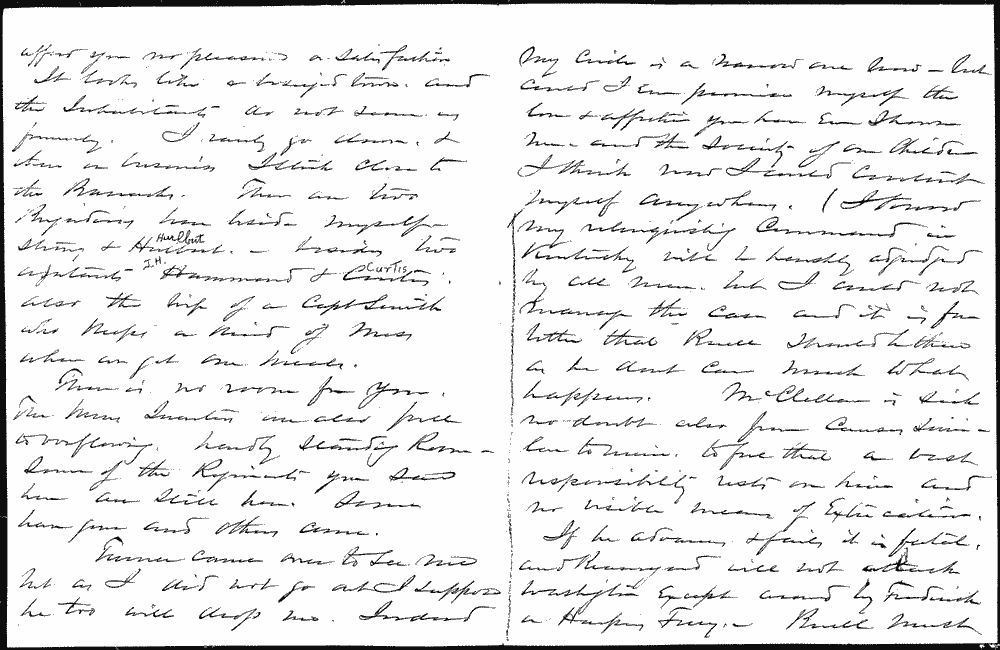 afford you no pleasure or satisfaction
It looks like a besieged town. and
the Inhabitants do not seem as
formerly. I rarely go down. &
when on business I stick close to
the Barracks. There are two
Brigadiers here beside myself
Strong & Hurlbut. Hurlbut - besides two
adjutants J.H. Hammond & Curtis. Curtis
also the wife of a Capt Smith
who keeps a kind of Mess
where we get our meals.
There is no room for you.
The house Quarters are also full
to overflowing. hardly standing Room -
Some of the Regiments you saw
here are still here. Some
have gone and others come.
Turner came over to see me
but as I did not go out I suppose
he too will drop me. Indeed
My Circle is a narrow one now - but
could I even promise myself the
love & affection you have Ever Shown
me - and the Society of our Children
I think now I could content
myself anywhere. (I know
my relinquishing Command in
Kentucky will be harshly adjudged
by all men. but I could not
manage the case and it is far
better that Buell should be there
as he dont care much what
happens. McClellan is sick
no doubt also from Causes Simi-
lar to mine. to see that a vast
responsibility rests on him and
no visible means of Extrication.
If he advances & fails it is fatal.
and Beauregard will not attack
Washington Except around by Frederick
or Harpers Ferry. - Buell must